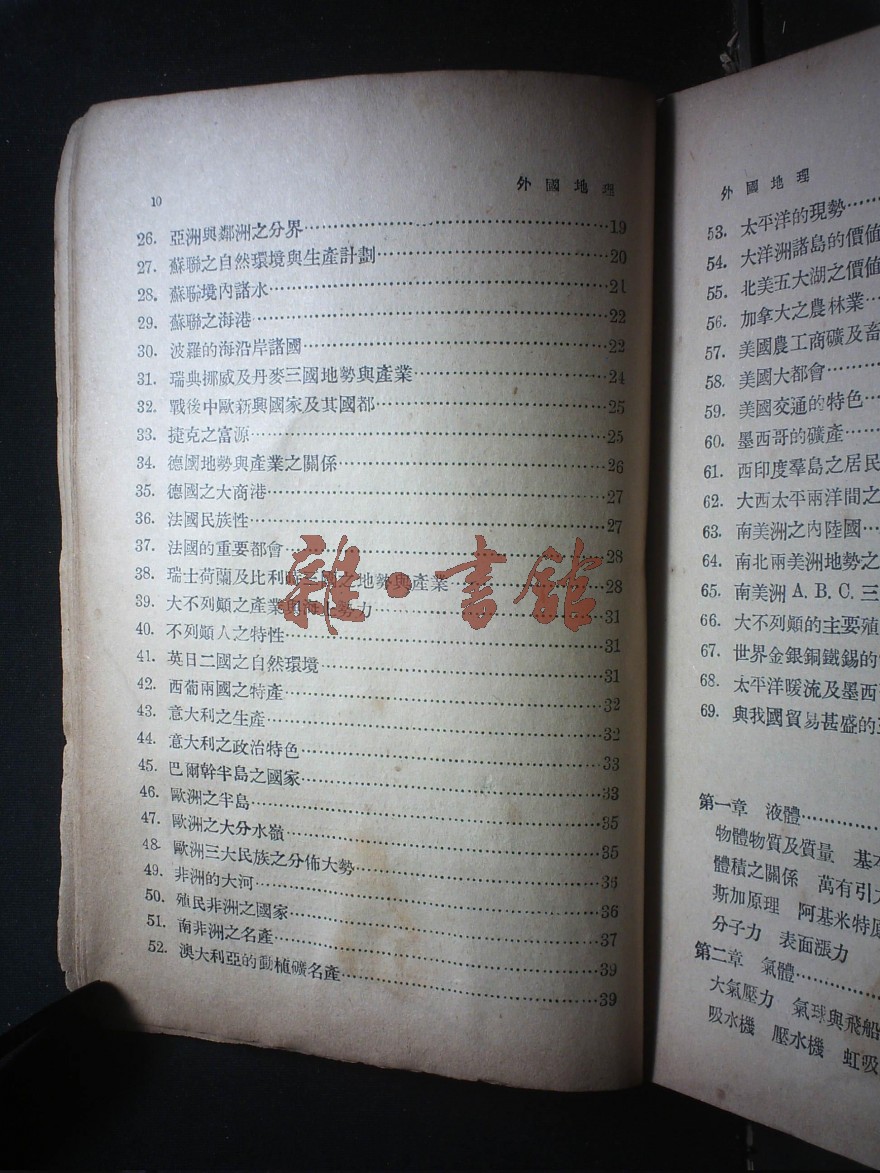 10
外國地理
26. 亞洲與鄰洲之分界 19
27. 蘇聯之自然環境與生產計劃 20
28. 蘇聯境內諸水 21
29. 蘇聯之海港 22
30. 波羅的海沿岸諸國 22
31. 瑞典挪威及丹麥三國地勢與產業 24
32. 戰後中歐新興國家及其國都 25
33. 捷克之富源 25
34. 德國地勢與產業之關係 26
35. 德國之大商港 27
36. 法國民族性 27
37. 法國的重要都會 28
38. 瑞士荷蘭及比利時三國之地勢與產業 28
39. 大不列顛之產業與海上勢力 31
40. 不列顛人之特性 31
41. 英日二國之自然環境 31
42. 西葡兩國之特產 32
43. 意大利之生產 32
44. 意大利之政治特色 33
45. 巴爾幹半島之國家 33
46. 歐洲之半島 35
47. 歐洲之大分水嶺 35
48. 歐洲三大民族之分佈大勢 36
49. 非洲的大河 36
50. 殖民非洲之國家 37
51. 南非洲之名產 39
52. 澳大利亞的動植礦名產 39
雜·書館
外國地理
53. 太平洋的現勢
54. 大洋洲諸島的價值
55. 北美五大湖之價值
56. 加拿大之農林業
57. 美國農工商礦及畜
58. 美國大都會
59. 美國交通的特色
60. 墨西哥的礦產
61. 西印度羣島之居民
62. 大西太平兩洋間之
63. 南美洲之內陸國
64. 南北兩美洲地勢之
65. 南美洲 A. B. C. 三
66. 大不列顛的主要殖
67. 世界金銀銅鐵錫的
68. 太平洋暖流及墨西
69. 與我國貿易甚盛的
第一章 液體
物體物質及質量 基本
體積之關係 萬有引力
斯加原理 阿基米特原
分子力 表面漲力
第二章 氣體
大氣壓力 氣球與飛船
吸水機 壓水機 虹吸